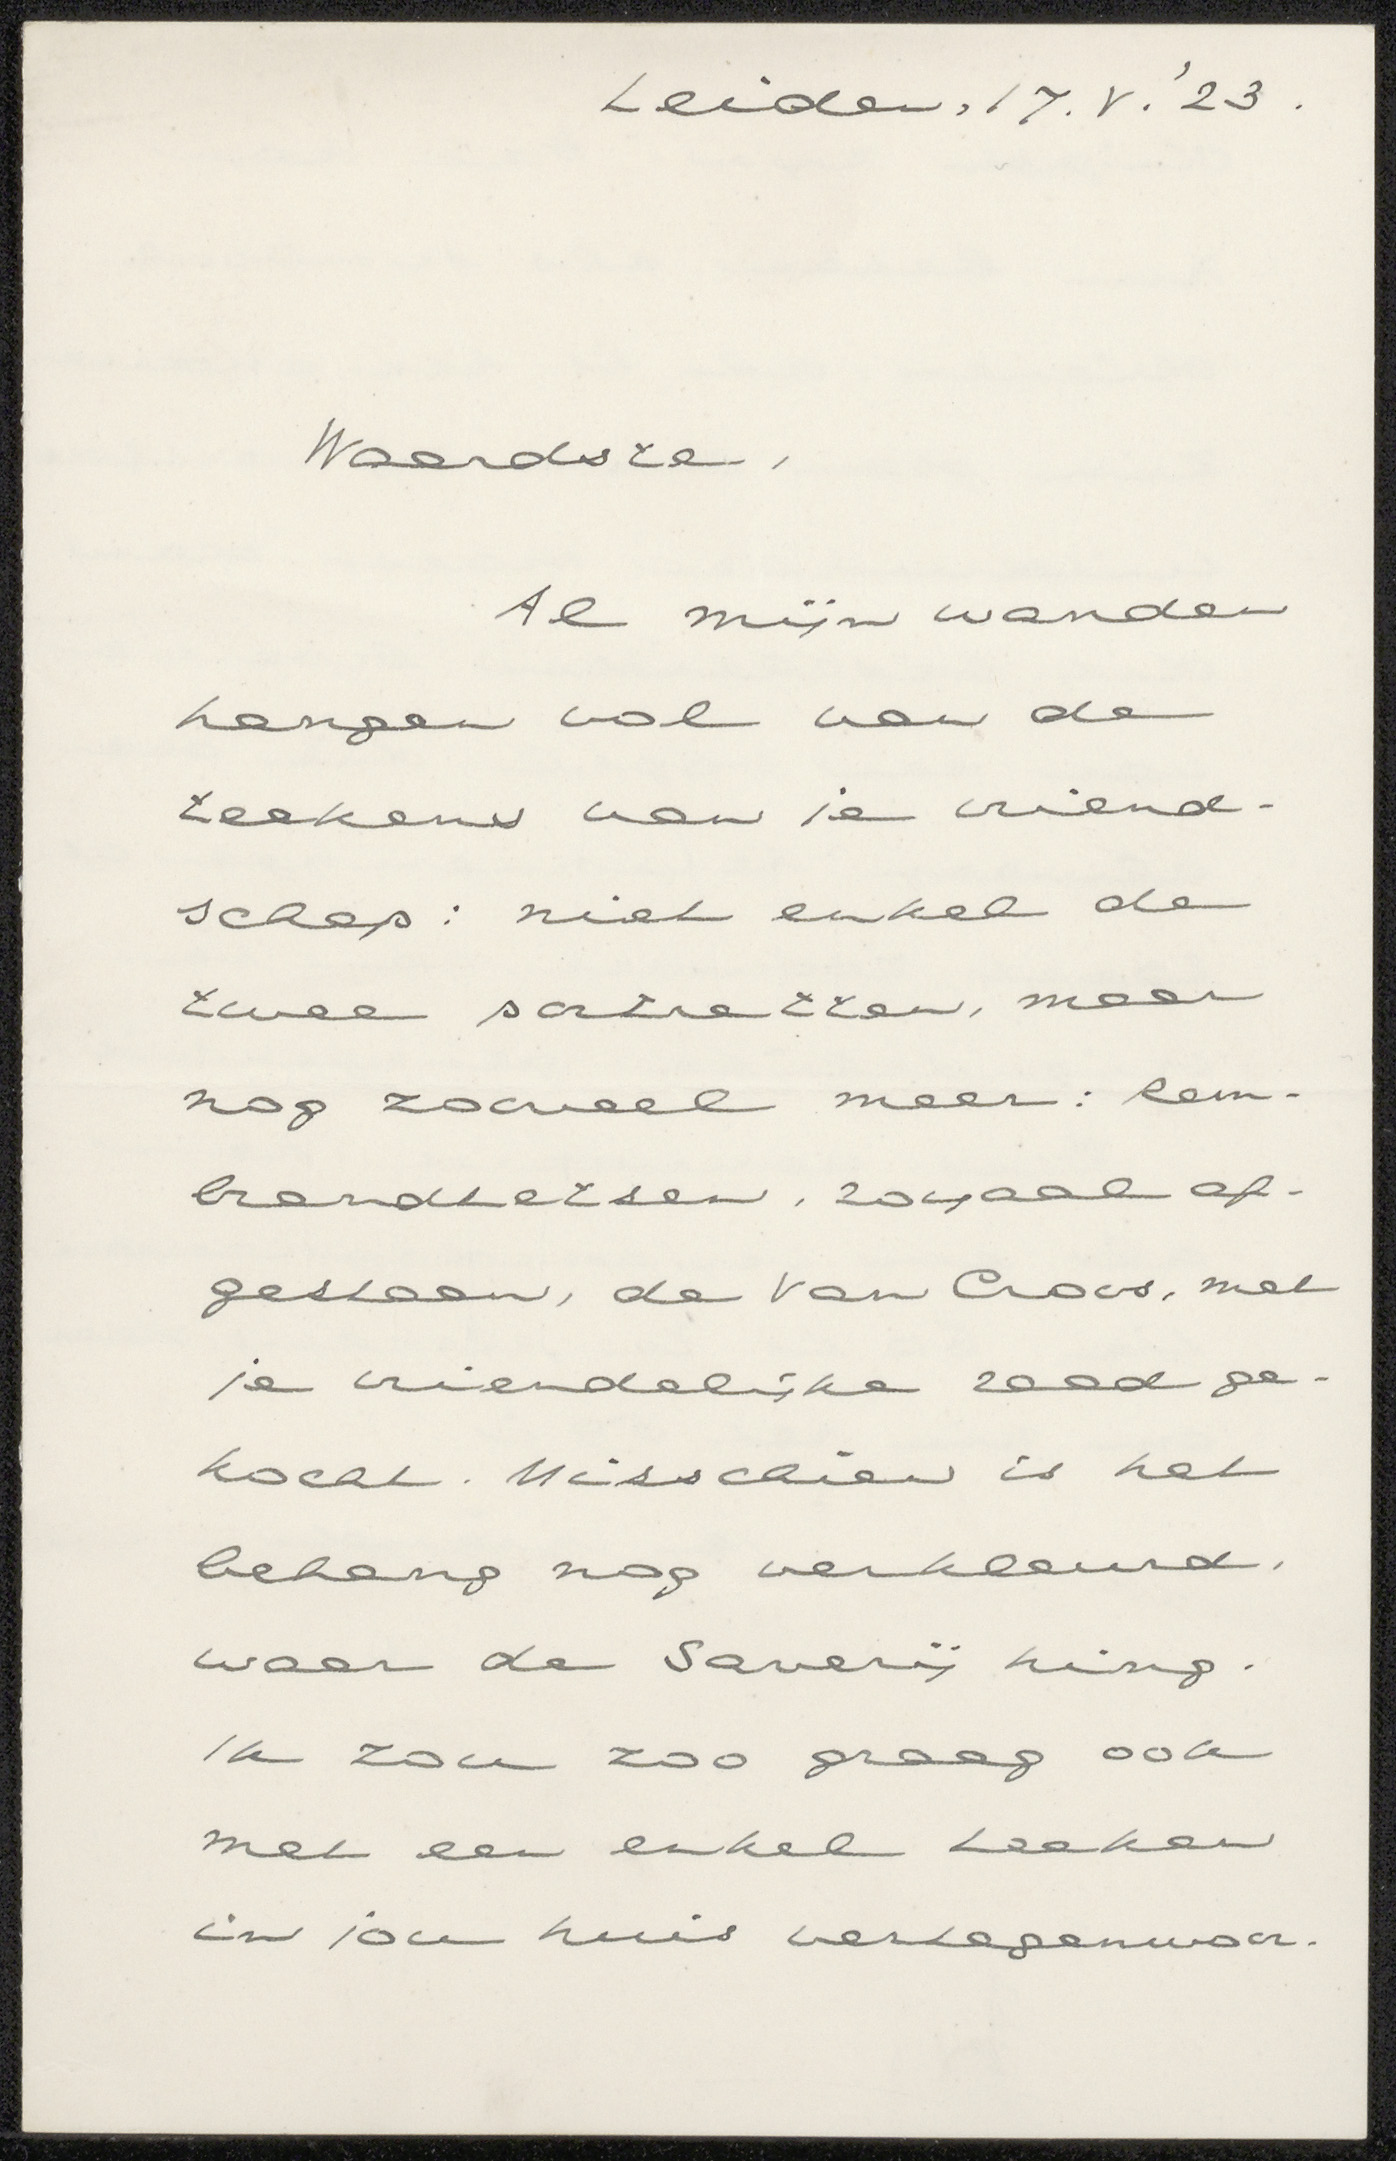 Leiden, 17. V. '23.
Waardste,
Al mijn wanden
hangen vol van de
teekens van je vriend-
schap: niet enkel de
twee portretten, maar
nog zooveel meer: Rem-
brandtetsen, royaal af-
gestaan, de Van Croos, met
je vriendelijke raad ge-
kocht. Misschien is het
behang nog verkleurd,
waar de Saverij hing.
Ik zou zoo graag ook
met een enkel teeken
in jou huis vertegenwoor-